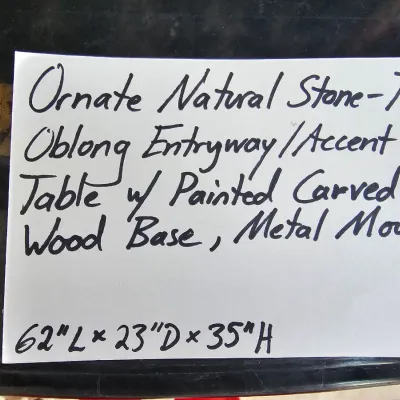 Ornate Natural Stone-
Oblong Entryway/Accent
Table w/ Painted Carved
Wood Base, Metal
62"L x 23"D x 35"H